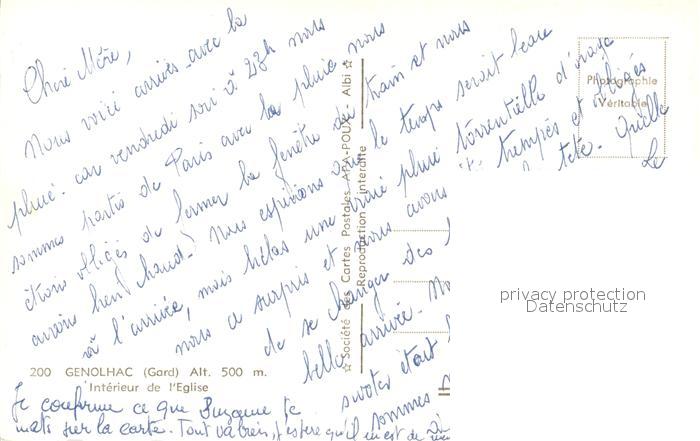 Chère Mère,
Nous voici arrivés avec la
pluie. car vendredi soir à 23h nous
sommes partis de Paris avec la pluie nous
étions obligés de fermer la fenêtre du train et nous
avions bien chaud! Nous espérions que le temps serait beau
à l'arrivée, mais hélas une vraie pluie torrentielle d'orage
nous a surpris et nous avons trempés et obligés
de se changer des tête. Quelle
belle arrivée. Le
était
sommes
200 GENOLHAC (Gard) Alt. 500 m.
Intérieur de l'Eglise
Je confirme ce que Suzanne te
mets sur la carte. Tout va bien j'espère qu'il en est de
☆ Société des Cartes Postales APA-POUX - Albi ☆
Reproduction interdite
Photographie
Véritable
privacy protection
Datenschutz